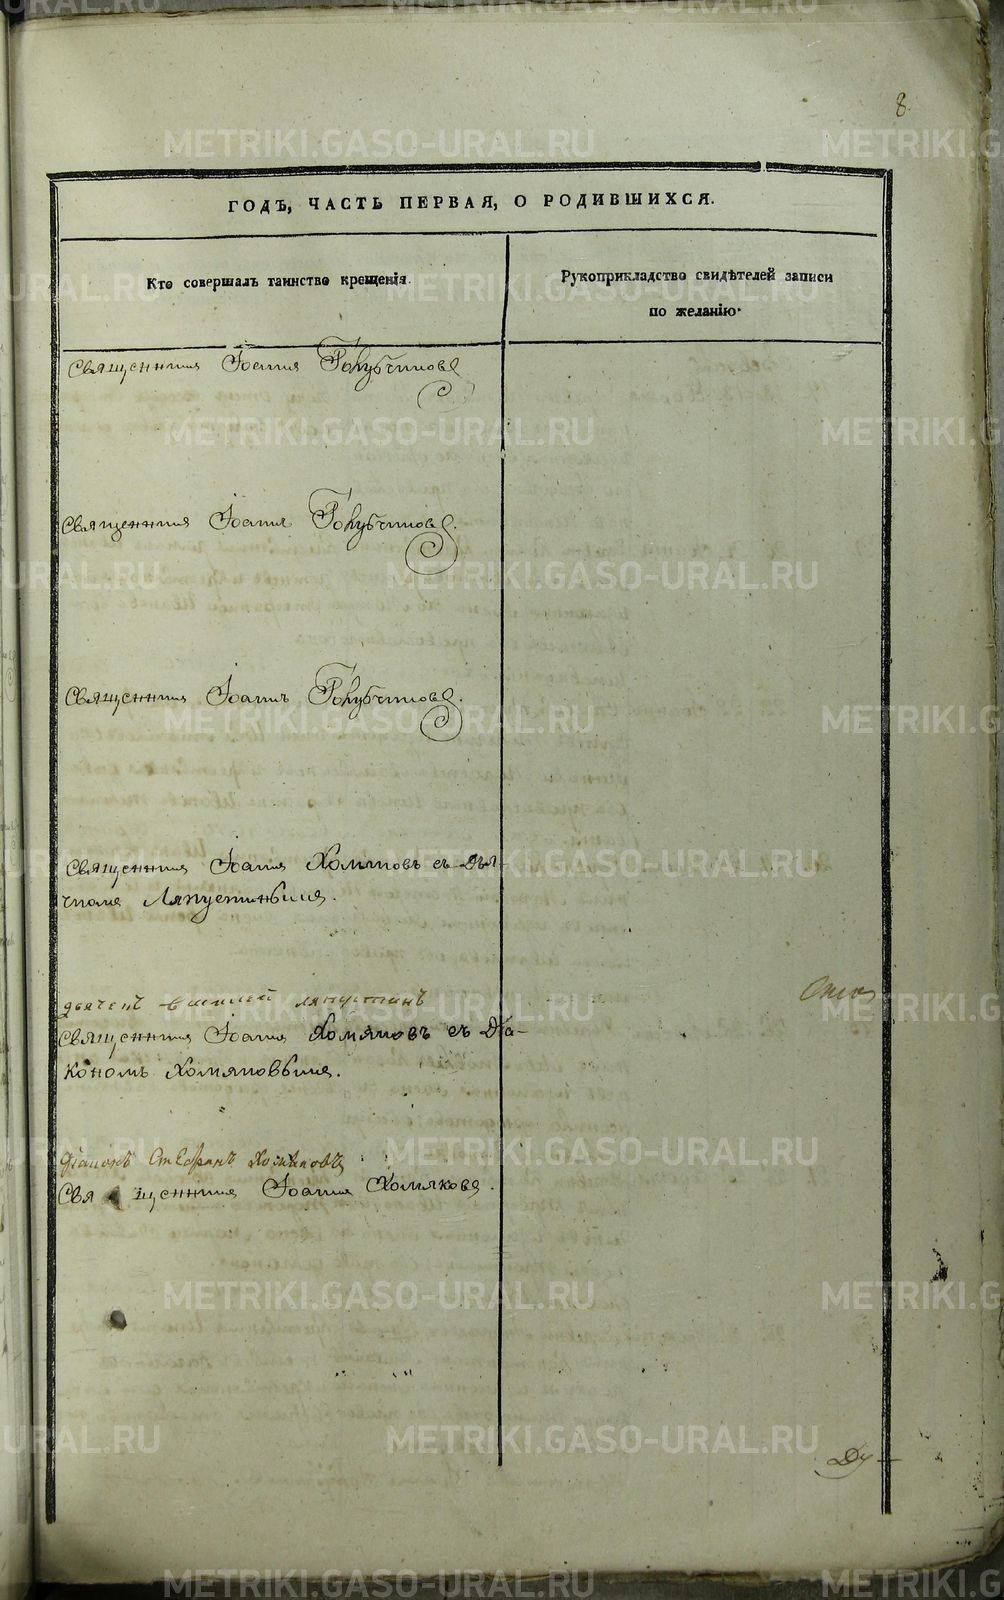 8
ГОДЪ, ЧАСТЬ ПЕРВАЯ, О РОДИВШИХСЯ.
Кто совершалъ таинство крещенія.
Рукоприкладство свидѣтелей записи
по желанію.
Священникъ Іоаннъ Голубчиковъ
Священникъ Іоаннъ Голубчиковъ.
Священникъ Іоаннъ Голубчиковъ.
Священникъ Іоаннъ Хомяковъ съ Дья-
чкомъ Ляпустинымъ.
дьячекъ василей ляпустинъ
Священникъ Іоаннъ Хомяковъ съ Діа-
кономъ Хомяковымъ.
діаконъ Стефанъ Хомяковъ
Священникъ Іоаннъ Хомяковъ.
Ду-
METRIKI.GASO-URAL.RU